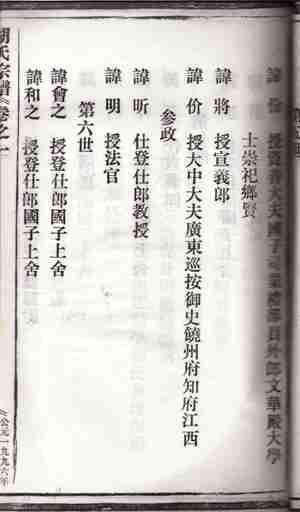 諱份 授資善大夫國子司業禮部員外郎文華殿大學
士崇祀鄉賢
諱將 授宣義郎
諱价 授大中大夫廣東巡按御史饒州府知府江西
參政
諱昕 仕登仕郎教授
諱明 授法官
第六世
諱會之 授登仕郎國子上舍
諱和之 授登仕郎國子上舍
胡氏宗譜《卷之一
《公元一九九六年